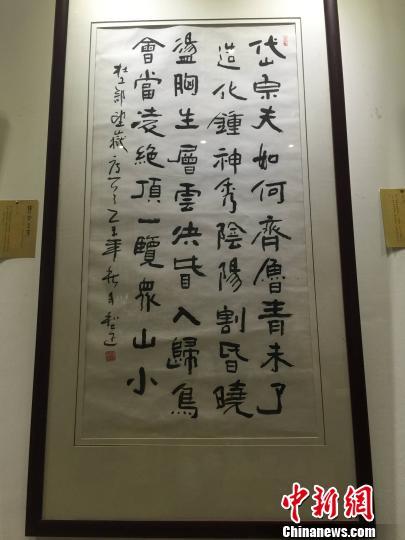 岱宗夫如何齊魯青未了
造化鍾神秀陰陽割昏曉
盪胸生層雲决眥入歸鳥
會當凌絕頂一覽眾山小
杜工部望嶽 乙未年
中新网
Chinanews.com